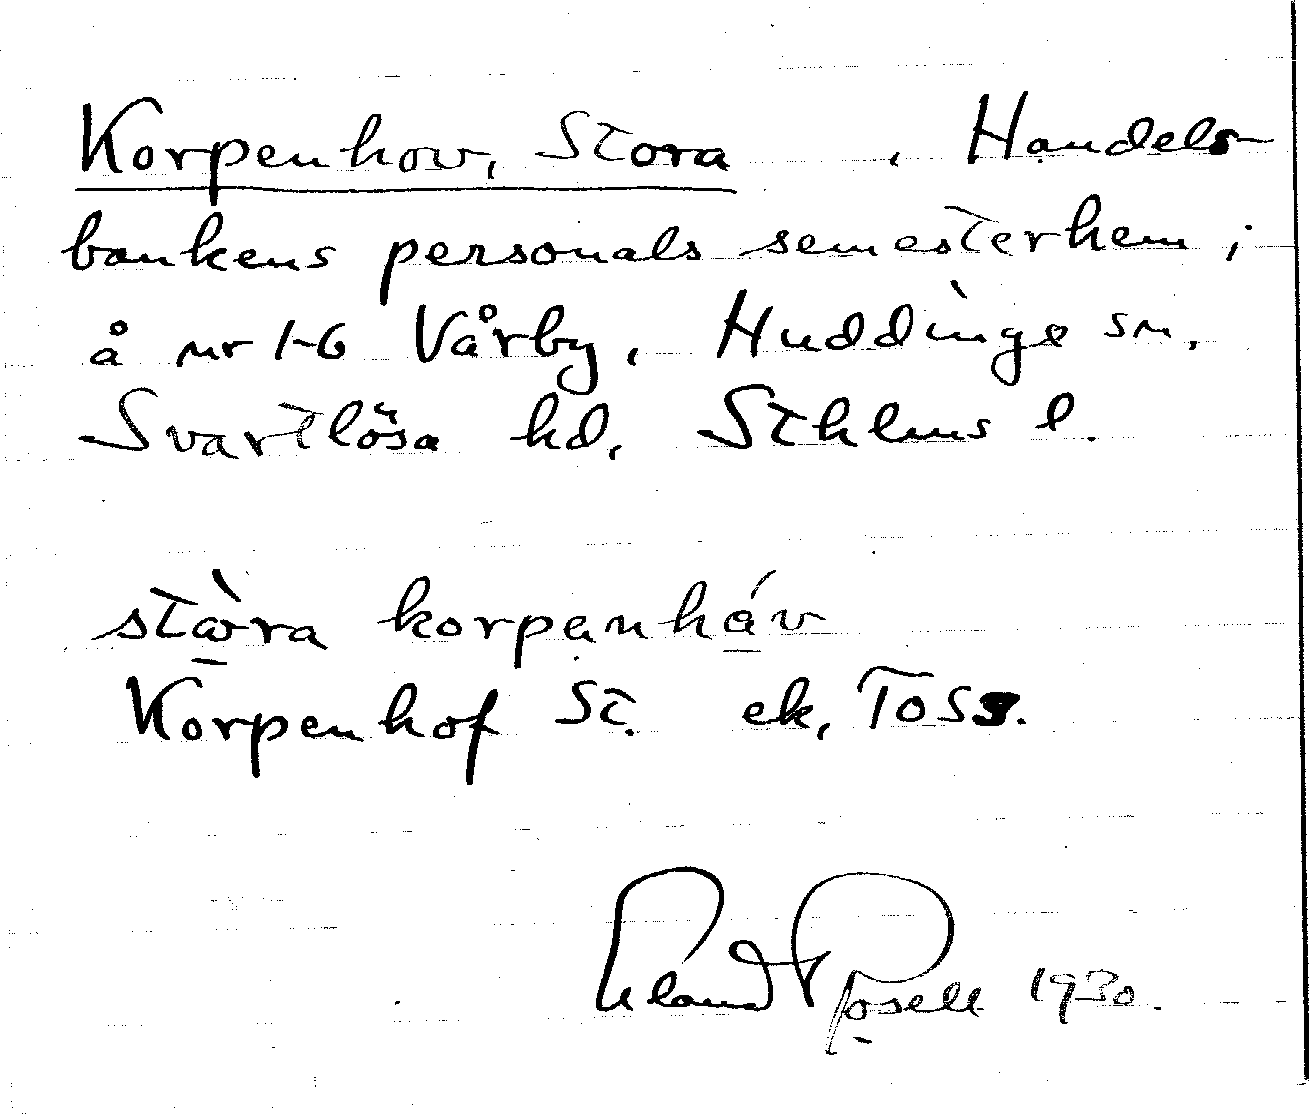 Korpenhov, Stora , Handels-
bankens personals semesterhem ;
å nr 1-6 Vårby, Huddinge sn.
Svartlösa hd, Sthlms l.
stòra korpanháv
Korpenhof St. ek, Toss.
Rosell 1930.